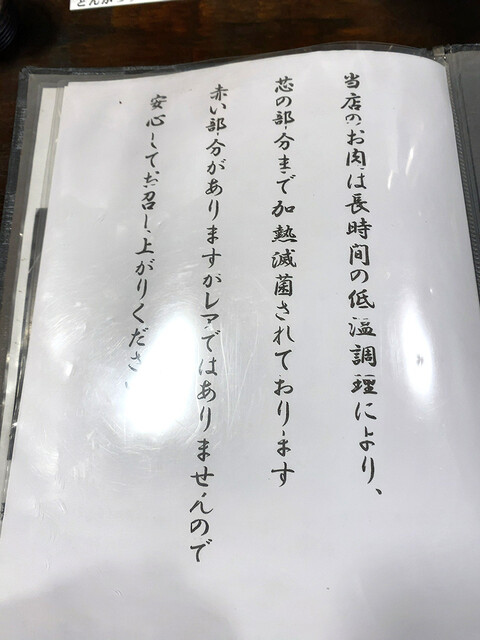 当店のお肉は長時間の低温調理により、
芯の部分まで加熱滅菌されております
赤い部分がありますがレアではありませんので
安心してお召し上がりくださ